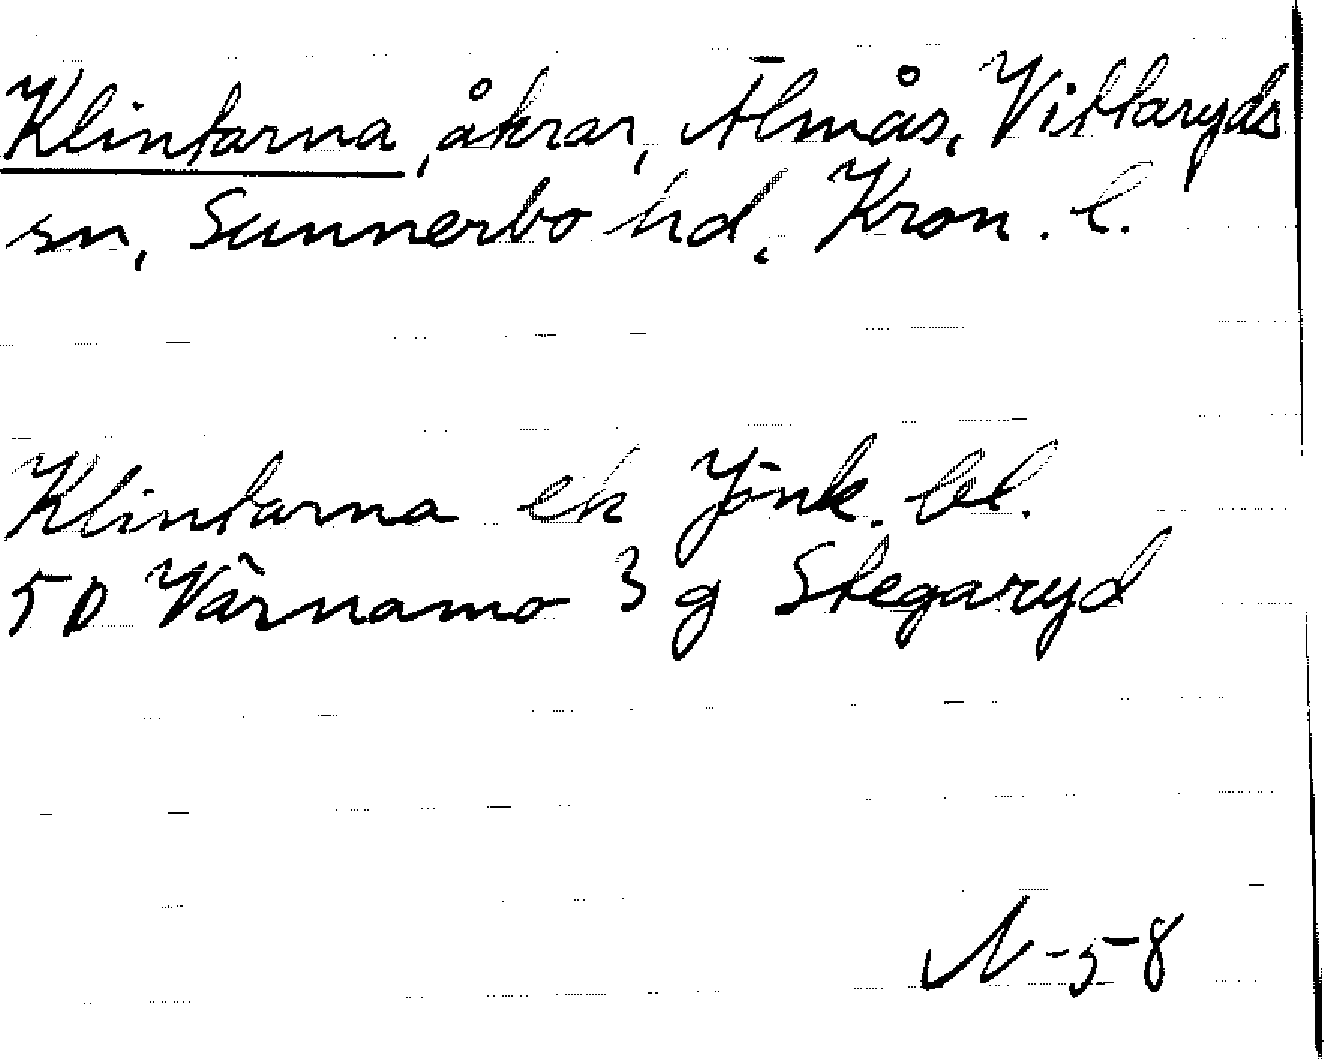 Klintarna, åkrar, Älmås, Vittaryds
sn, Sunnerbo hd, Kron. l.
Klintarna ek Jönk. bl.
5D Värnamo 3 g Stegaryd
N-58